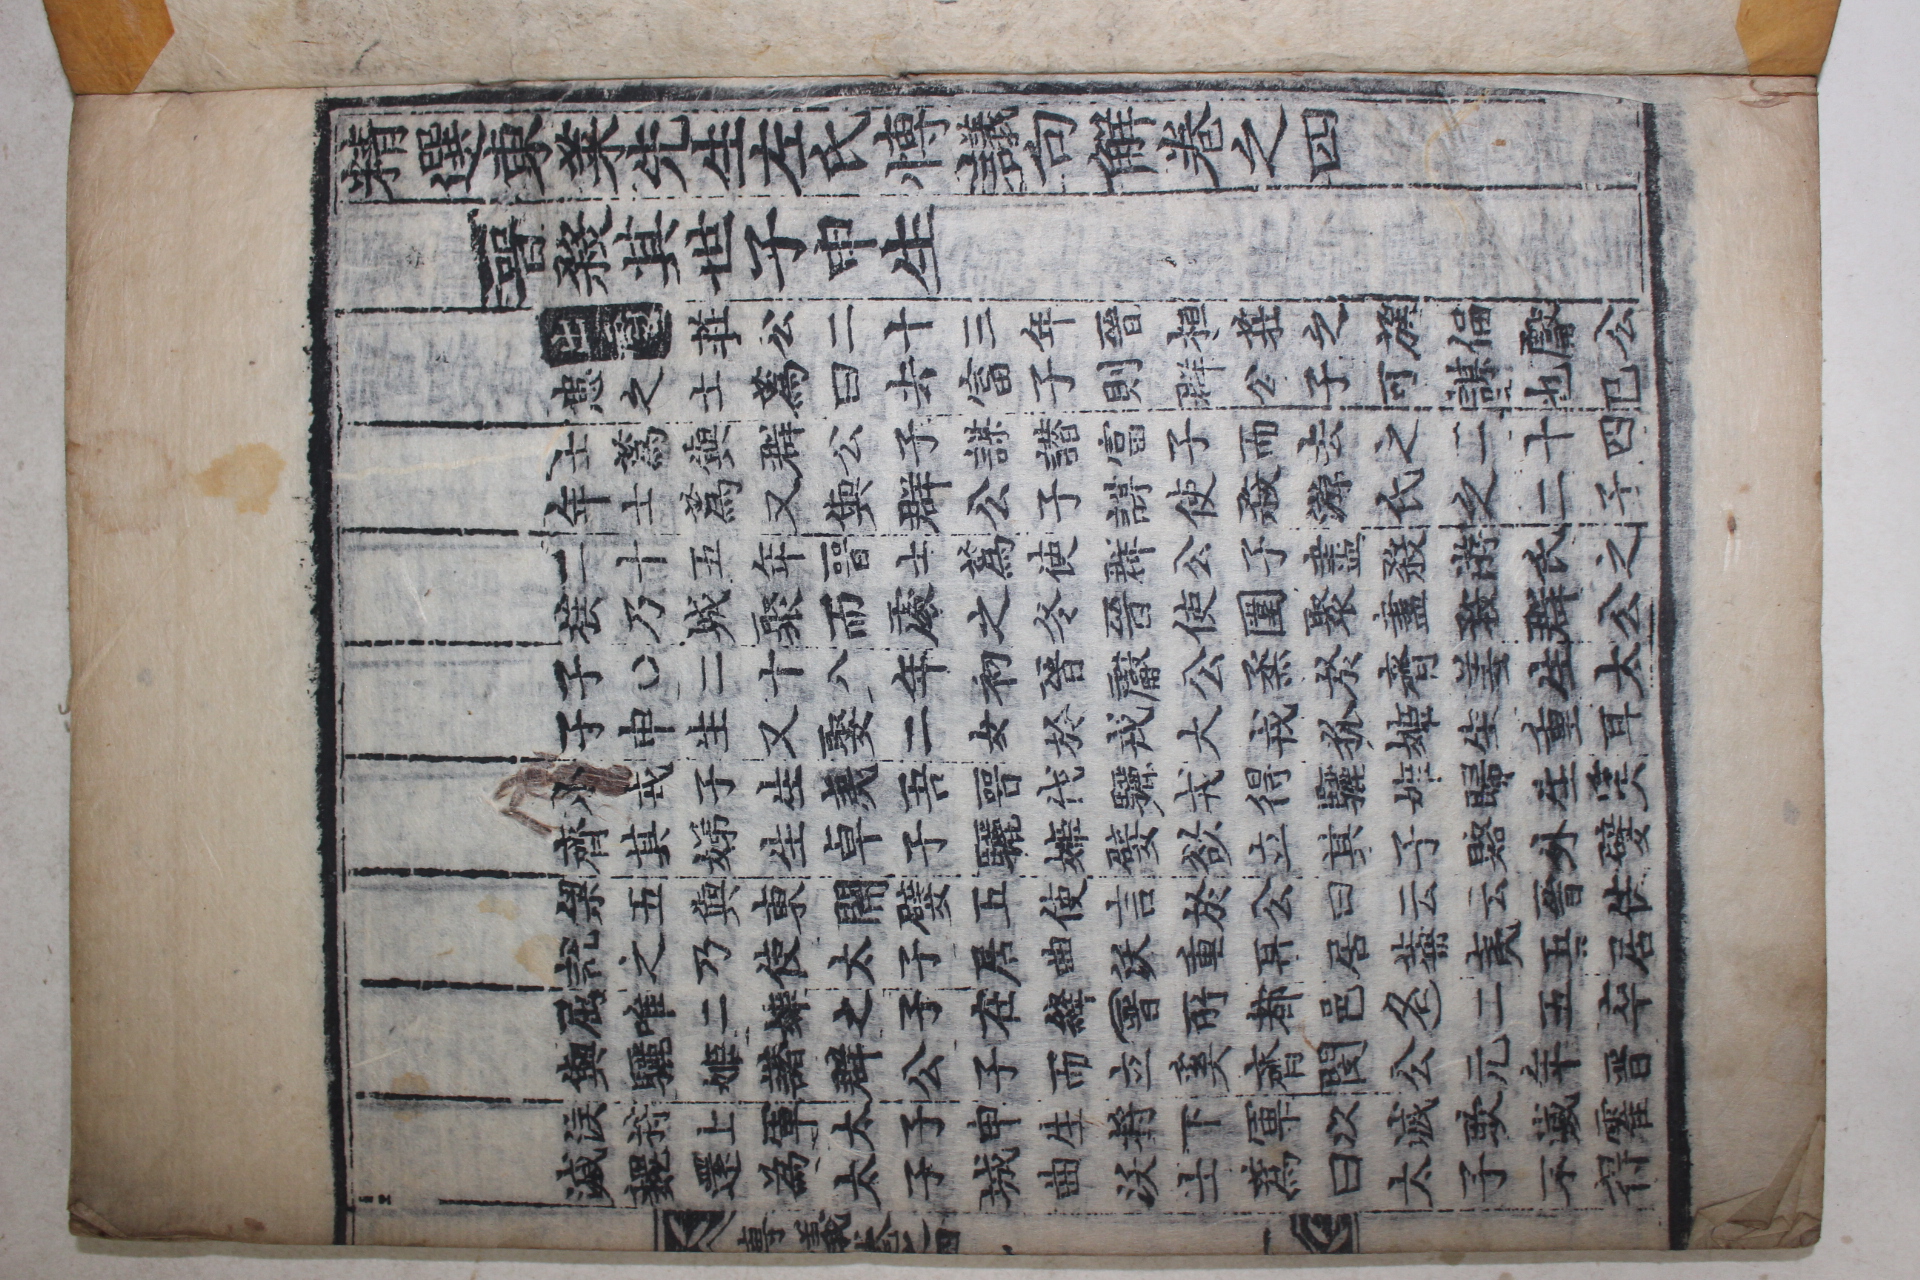 精選東萊先生左氏愽議句解卷之四
晉殺其世子申生
出處莊公二十三年晉桓莊之族偪獻公
患之士蔿曰去富子則群公子可謀也已
士蔿與群公子謀譖富子而去之二十四
年士蔿又與群公子謀使殺游氏之二子
二十五年晉士蔿使群公子盡殺游氏之
族乃城聚而處之冬晉使圍聚盡殺群公
子〇二十八年初晉獻公烝於齊姜生太
子申生又娶二女於戎大戎狐姬生重耳
小戎子生夷吾晉伐驪戎得驪姬歸生奚
齊其娣生卓子驪姬嬖欲立其子賂外嬖
梁五與東關嬖五使言於公曰云云晉侯
說之乃使太子居曲沃重耳居蒲夷吾居
屈唯二姬之子在絳會所都邑名二五卒
與驪姬譖群公子而立奚齊閔公元年晉
侯將上軍太子申生將下軍次滅耿滅霍
滅魏還為太子城曲沃士蔿曰太子不得
傳議卷之四
一